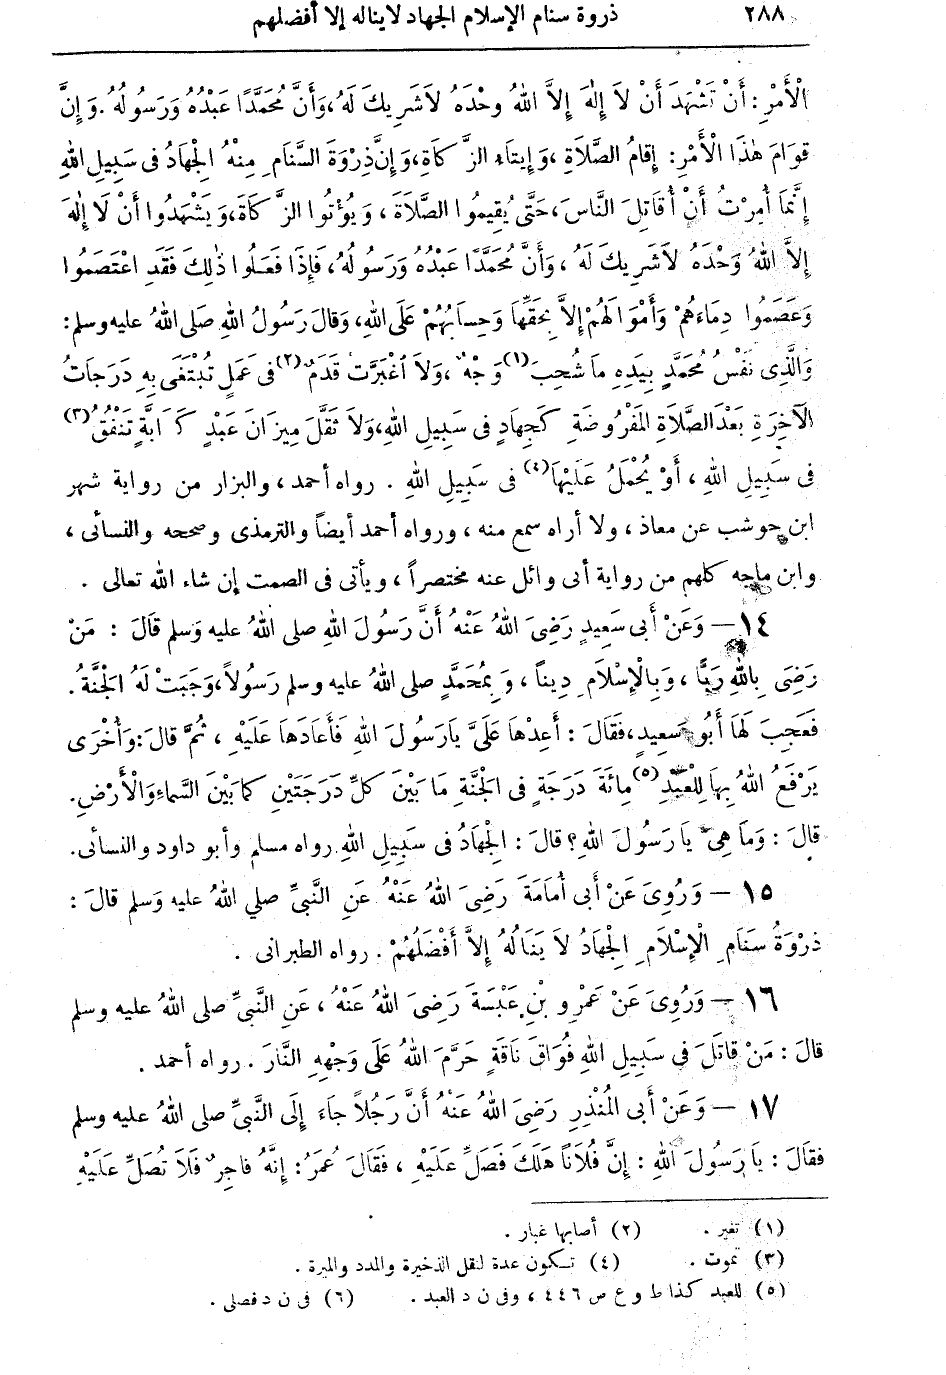 ٢٨٨ ذروة سنام الإسلام الجهاد لا يناله إلا أفضلهم
الْأَمْرِ : أَنْ تَشْهَدَ أَنْ لَا إِلٰهَ إِلاَّ اللهُ وحْدَهُ لاَشَرِيكَ لَهُ، وَأَنَّ مُحَمَّدًا عَبْدُهُ وَرَسُولُهُ . وَإِنَّ
قِوَامَ هٰذَا الْأَمْرِ : إِقَامُ الصَّلاَةِ ، وَإِيتَاءِ الزَّكاَةِ، وَإِنَّ ذِرْوَةَ السَّنَامِ مِنْهُ الْجِهَادُ فى سَبِيلِ اللهِ
إِنَّمَا أُمِرْتُ أَنْ أُقَاتِلَ النَّاسَ، حَتَّى يُقِيمُوا الصَّلاَةَ ، وَيُؤْتُوا الزَّكَاةَ، وَيَشْهَدُوا أَنْ لَا إِلٰهَ
إِلاَّ اللهُ وَحْدَهُ لاَشَرِيكَ لَهُ ، وَأَنَّ مُحَمَّدًا عَبْدُهُ وَرَسُولُهُ، فَإِذَا فَعَلُوا ذٰلِكَ فَقَدِ اعْتَصَمُوا
وَعَصَمُوا دِمَاءَهُمْ وَأَمْوَالَهُمْ إِلاَّ بِحَقِّهَا وَحِسَابُهُمْ عَلَى اللهِ، وَقَالَ رَسُولُ اللهِ صَلى اللهُ عليه وسلم :
وَالَّذِى نَفْسُ مُحَمَّدٍ بِيَدِهِ مَا شُحِبَ (١) وَجْهٌ ، وَلاَ اغْبَرَّتْ قَدَمٌ (٢) فى عَمَلٍ تُبْتَغَى بِهِ دَرَجَاتُ
الآخِرَةِ بَعْدَ الصَّلاَةِ المَفْرُوضَةِ كَجِهَادٍ فى سَبِيلِ اللهِ، وَلاَ ثَقَّلَ مِيزَانَ عَبْدٍ كَدَابَّةٍ تَنْفُقُ (٣)
فى سَبِيلِ اللهِ ، أَوْ يُحْمَلُ عَلَيْهَا (٤) فى سَبِيلِ اللهِ . رواه أحمد ، والبزار من رواية شهر
ابن حوشب عن معاذ ، ولا أراه سمع منه ، ورواه أحمد أيضاً والترمذى وصححه والنسائى ،
وابن ماجه كلهم من رواية أبى وائل عنه مختصراً ، ويأتى فى الصمت إن شاء الله تعالى .
١٤ — وَعَنْ أَبى سَعِيدٍ رَضِىَ اللهُ عَنْهُ أَنَّ رَسُولَ اللهِ صلى اللهُ عليه وَسلم قَالَ : مَنْ
رَضِىَ بِاللهِ رَبًّا ، وَبِالْإِسْلَامِ دِيناً ، وَبِمُحَمَّدٍ صلى اللهُ عليه وسلم رَسُولاً، وَجَبَتْ لَهُ الْجَنَّةُ .
فَعَجِبَ لَهَا أَبُو سَعِيدٍ، فَقَالَ : أَعِدْهَا عَلَىَّ يَارَسُولَ اللهِ فَأَعَادَهَا عَلَيْهِ ، ثُمَّ قالَ : وَأُخْرَى
يَرْفَعُ اللهُ بِهَا لِلْعَبْدِ (٥) مِائَةَ دَرَجَةٍ فى الجَنَّةِ مَا بَيْنَ كلِّ دَرَجَتَيْنِ كمَا بَيْنَ السَّماءِ وَالْأَرْضِ .
قالَ : وَمَا هِىَ يَا رَسُولَ اللهِ؟ قالَ : الْجِهَادُ فى سَبِيلِ اللهِ رواه مسلم وأبو داود والنسائى.
١٥ — وَرُوِىَ عَنْ أَبى أُمَامَةَ رَضِىَ اللهُ عَنْهُ عَنِ النَّبىِّ صلي اللهُ عليه وَسلم قالَ :
ذرْوَةُ سنَامِ الْإِسْلاَمِ الجْهَادُ لاَ يَنَالُهُ إِلاَّ أَفْضَلُهُمْ . رواه الطبرانى .
١٦ — وَرُوِىَ عَنْ عَمْرِو بْنِ عَبْسَةَ رَضِىَ اللهُ عَنْهُ ، عَنِ النَّبىِّ صلى اللهُ عليه وسلم
قالَ : مَنْ قاتَلَ فى سَبِيلِ اللهِ فُوَاقَ نَاقَةٍ حَرَّمَ اللهُ عَلَى وَجْهِهِ النَّارَ . رواه أحمد .
١٧ — وَعَنْ أَبى المُنْذِرِ رَضِىَ اللهُ عَنْهُ أَنَّ رَجُلاً جَاءَ إِلَى النَّبىِّ صلى اللهُ عليه وسلم
فقَالَ : يَا رَسُولَ اللهِ : إِنَّ فُلَاناً هَلَكَ فَصَلِّ عَلَيْهِ ، فَقَالَ عُمَرُ : إِنَّهُ فاجِرٌ فَلاَ تُصَلِّ عَلَيْهِ
(١) تغير . (٢) أصابها غبار .
(٣) تموت . (٤) تكون عدة لنقل الذخيرة والمدد والميرة .
(٥) للعبد كذا ط و ع ص ٤٤٦ ، وفى ن د العبد . (٦) فى ن د فصلى .